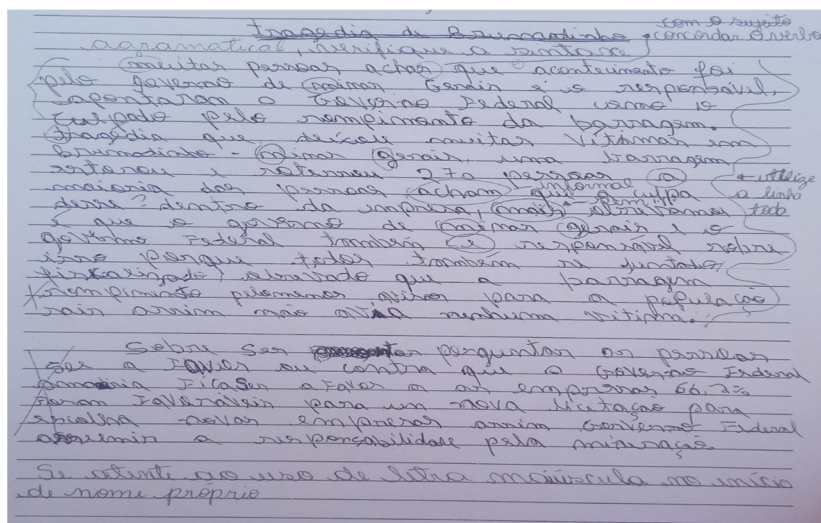 com o sujeito
Tragédia de Brumadinho concordar o verbo
agramatical, verifique a sintaxe
muitas pessoas achar que acontecimento foi
pelo governo de minas Gerais e o responsável,
apontaram o Governo Federal como o
culpado pelo rompimento da barragem.
tragédia que deixou muitas vítimas em
Brumadinho - minas gerais. uma barragem
estorou e soternou 270 pessoas a
informal utilize
maioria das pessoas acham que a culpa a linha
desse? dentro da impresa, mais bem toda
é que o governo de minas gerais e o
governo Federal também é responsável sobre
isso porque todos também se juntado,
fiscalizado, que a barragem
rompimento pelomenos avisar para a população
sair assim não avia nenhuma vitima.
Sobre Ser perguntar as pessoas
Ser a Favor ou contra que o Governo Federal
Ficasen a Favor a as empresas 66,7%
Foram Favoráveis para um nova licitação para
novas empresas assim Governo Federal
a responçabilidade pela mineração
Se atente ao uso de letra maiúscula no início
de nome próprio